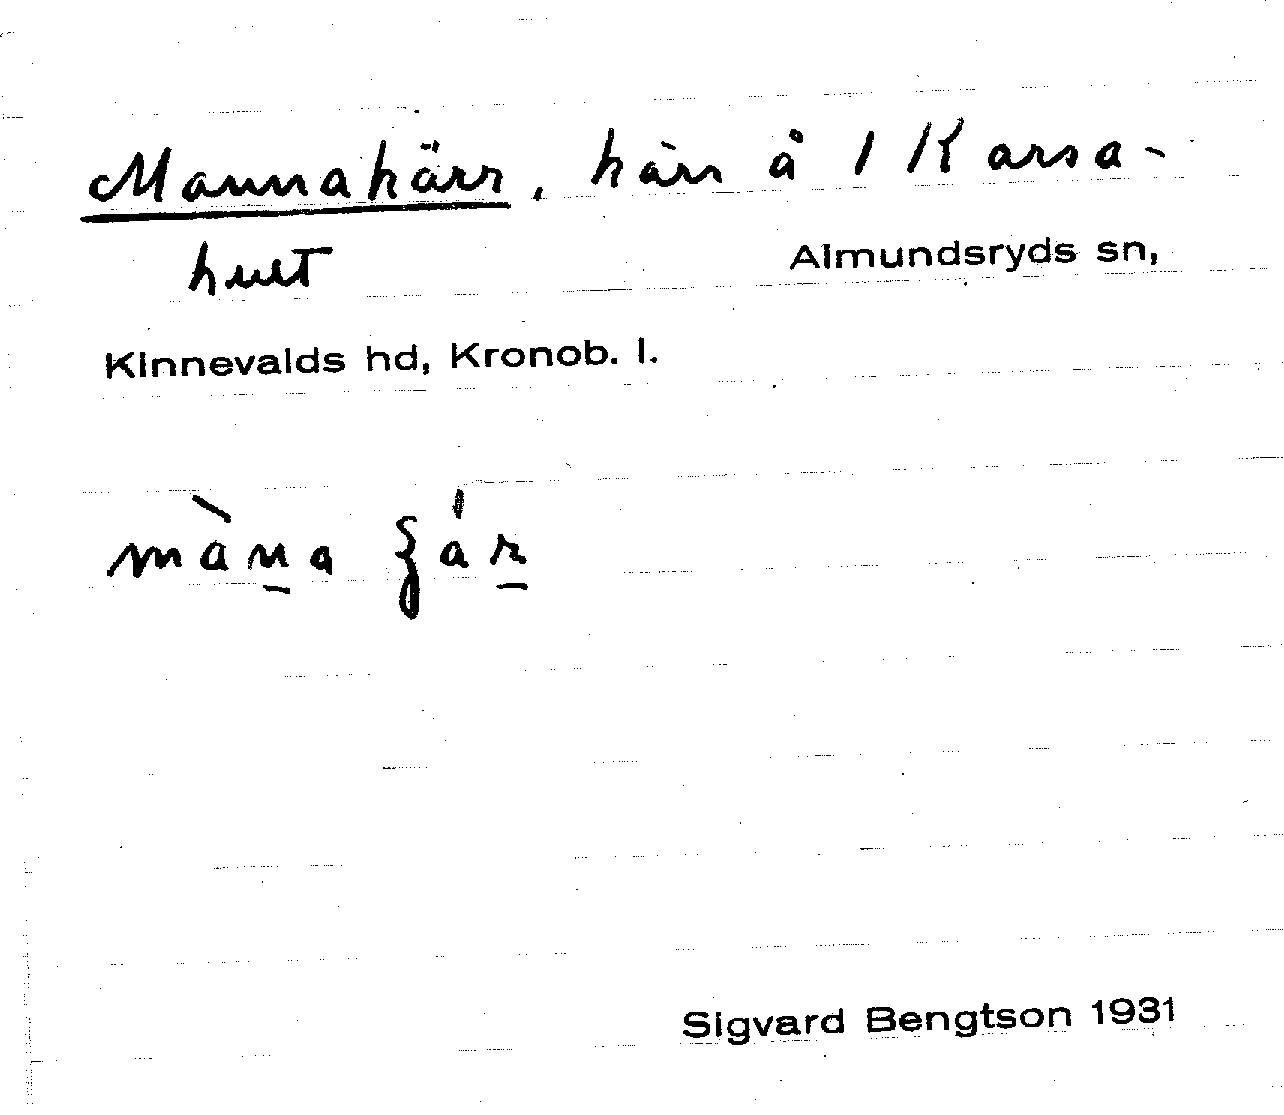 Mannakärr, kärr å 1 Karsa-
hult Almundsryds sn,
Kinnevalds hd, Kronob. l.
Sigvard Bengtson 1931